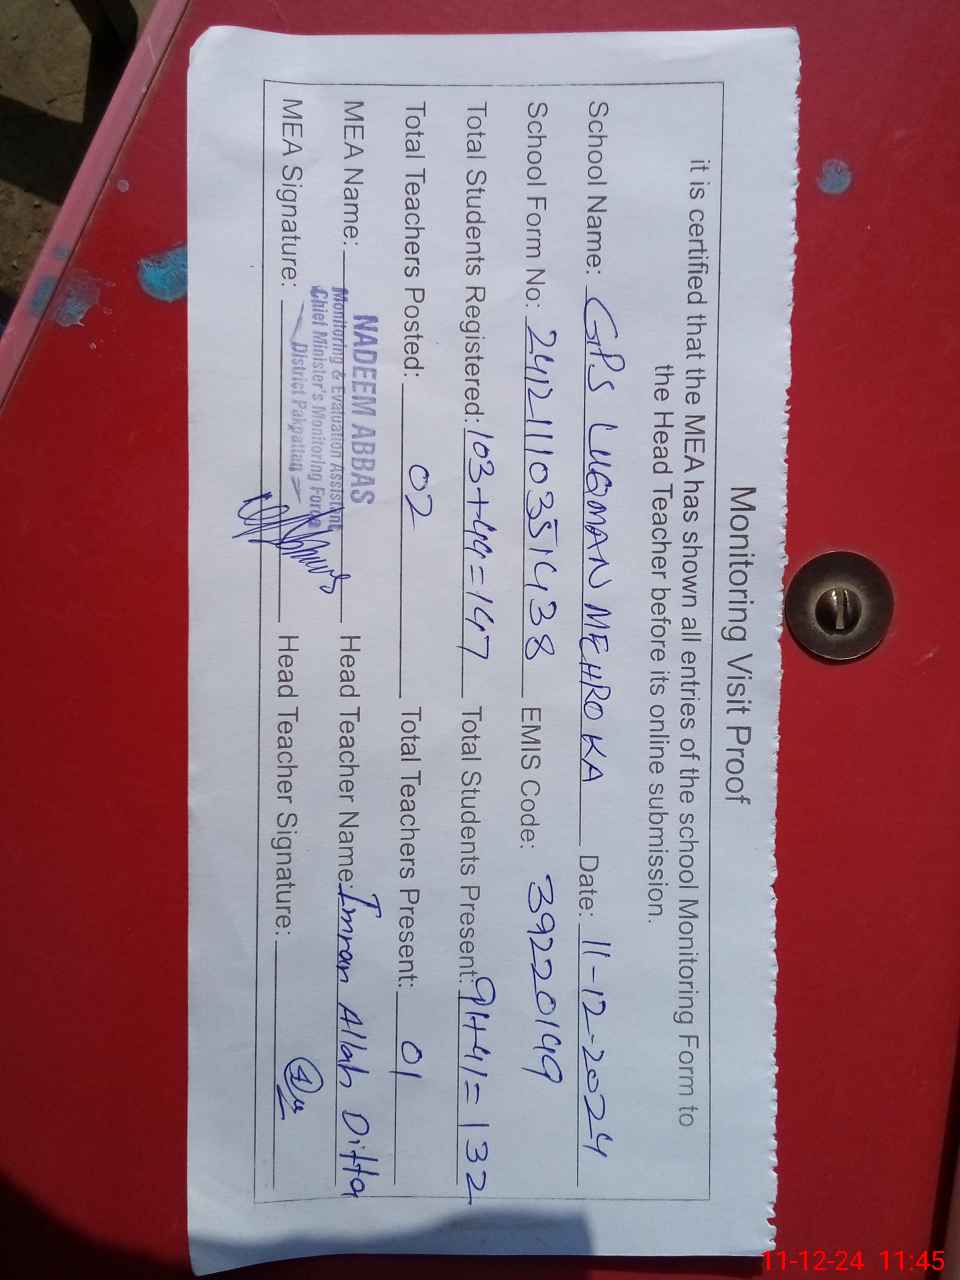 Monitoring Visit Proof
it is certified that the MEA has shown all entries of the school Monitoring Form to
the Head Teacher before its online submission.
School Name: GPS LUQMAN MEHROKA Date: 11-12-2024
School Form No: 241211103551438 EMIS Code: 39220149
Total Students Registered: 103+44=147 Total Students Present: 91+41=132
Total Teachers Posted: 02 Total Teachers Present: 01
MEA Name: Head Teacher Name: Imran Allah Ditta
NADEEM ABBAS
Monitoring & Evaluation Assistant
Chief Minister's Monitoring Force
District Pakpattan
MEA Signature: Head Teacher Signature:
11-12-24 11:45